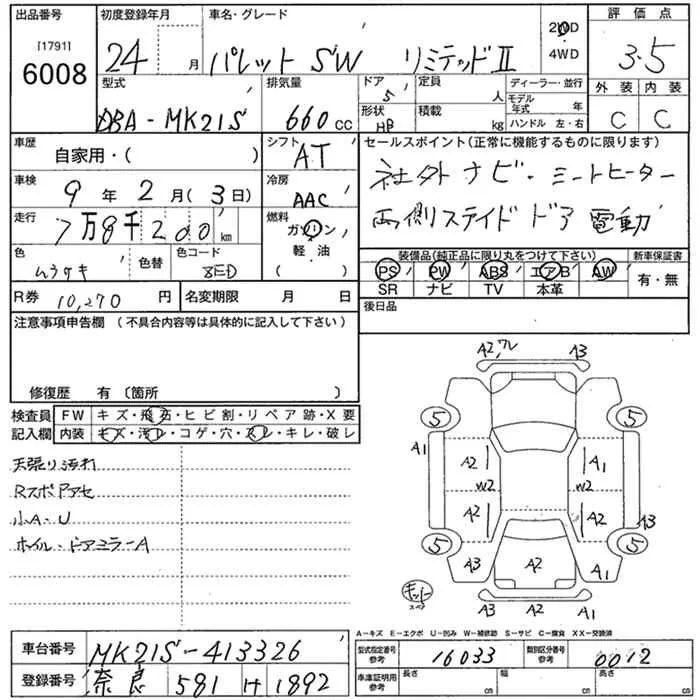 出品番号 初度登録年月 車名・グレード 2WD 評価点
[1791] 4WD
6008 24 月 パレット SW リミテッドⅡ 3.5
型式 排気量 ドア 定員 ディーラー・並行 外装 内装
5 人 モデル年式 年
DBA-MK21S 660 cc 形状 積載 ハンドル 左・右 C C
HB kg
車歴 シフト セールスポイント(正常に機能するものに限ります)
自家用・( ) AT
車検 冷房 社外ナビ・シートヒーター
9 年 2 月 ( 3 日) AAC
走行 燃料 両側スライドドア 電動
7万8千200 km ガソリン
色 色替 色コード 軽油 装備品(純正品に限り丸をつけて下さい) 新車保証書
ムラサキ ZED ( ) PS PW ABS エアB AW 有・無
R券 10,270 円 名変期限 月 日 SR ナビ TV 本革
注意事項申告欄 (不具合内容等は具体的に記入して下さい) 後日品
修復歴 有 〔箇所 〕
検査員 FW キズ・飛石・ヒビ割・リペア跡・X要
記入欄 内装 キズ・汚れ・コゲ・穴・スレ・キレ・破レ
天張り汚れ
Rスポアセ
小A・U
ホイル・ドアミラーA
A2,ワレ A3
5 5
A1 A2 A1
W2 W2
A2 A2 A3
5 5
A3 A2 A1
キット
スペア A3 A2 A1
A−キズ E−エクボ U−凹み W−補修跡 S−サビ C−腐食 XX−交換済
車台番号 MK21S-413326 型式指定番号 参考 16033 類別区分番号 参考 0012
登録番号 奈良 581 け 1892 車庫証明用 参考 長さ cm 幅 cm 高さ cm